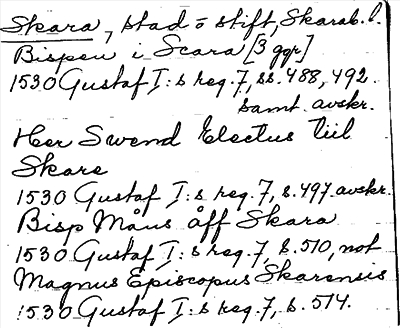 Skara, stad o stift, Skarab. l.
Bispen i Scara [3 ggr]
1530 Gustaf I:s reg. 7, ss. 488, 492.
samt. avskr.
Her Swend Electus till
Skare
1530 Gustaf I:s reg. 7, s. 497. avskr.
Bisp Måns åff Skara
1530 Gustaf I:s reg. 7, s. 510, not
Magnus Episcopus Skarensis
1530 Gustaf I:s reg. 7, s. 514.